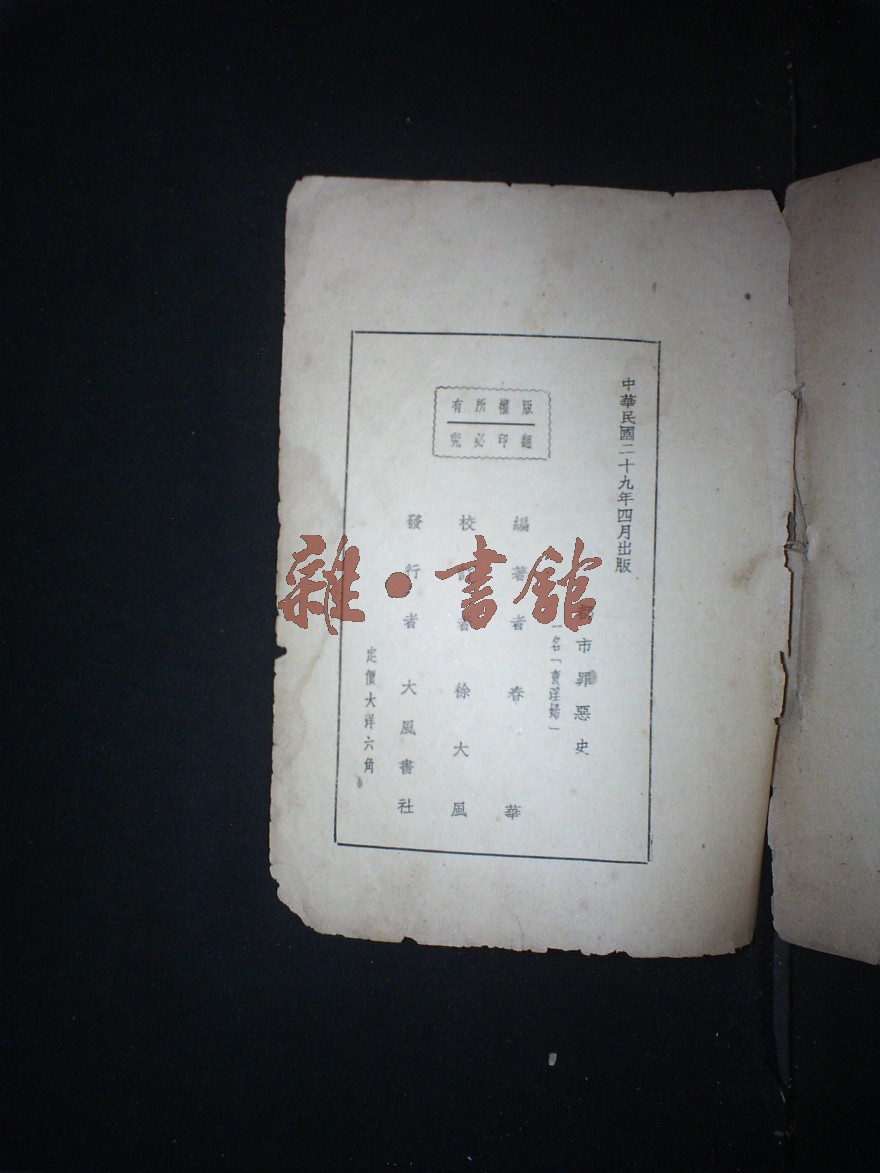 中華民國二十九年四月出版
都市罪惡史
一名「賣淫婦」
編著者春華
校 者徐大風
發行者大風書社
定價大洋六角
版權所有
翻印必究
雜·書館